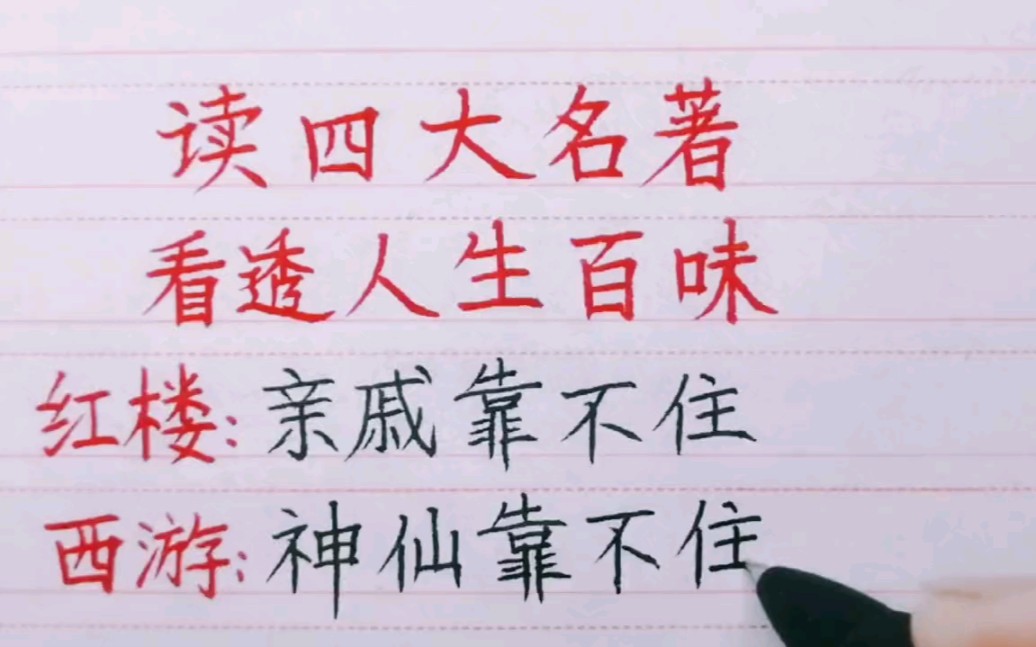 读四大名著
看透人生百味
红楼:亲戚靠不住
西游:神仙靠不住